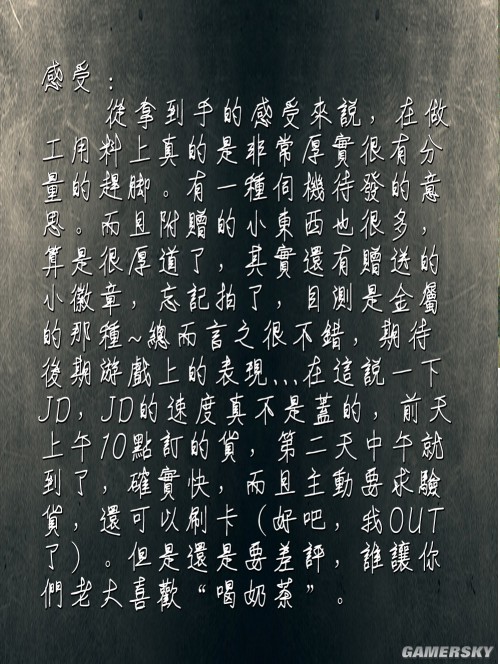 感受：
從拿到手的感受來說，在做
工用料上真的是非常厚實很有分
量的趕腳。有一種伺機待發的意
思。而且附贈的小東西也很多，
算是很厚道了，其實還有贈送的
小徽章，忘記拍了，目測是金屬
的那種~總而言之很不錯，期待
後期游戲上的表現...在這說一下
JD，JD的速度真不是蓋的，前天
上午10點訂的貨，第二天中午就
到了，確實快，而且主動要求驗
貨，還可以刷卡（好吧，我OUT
了）。但是還是要差評，誰讓你
們老大喜歡“喝奶茶”。
GAMERSKY